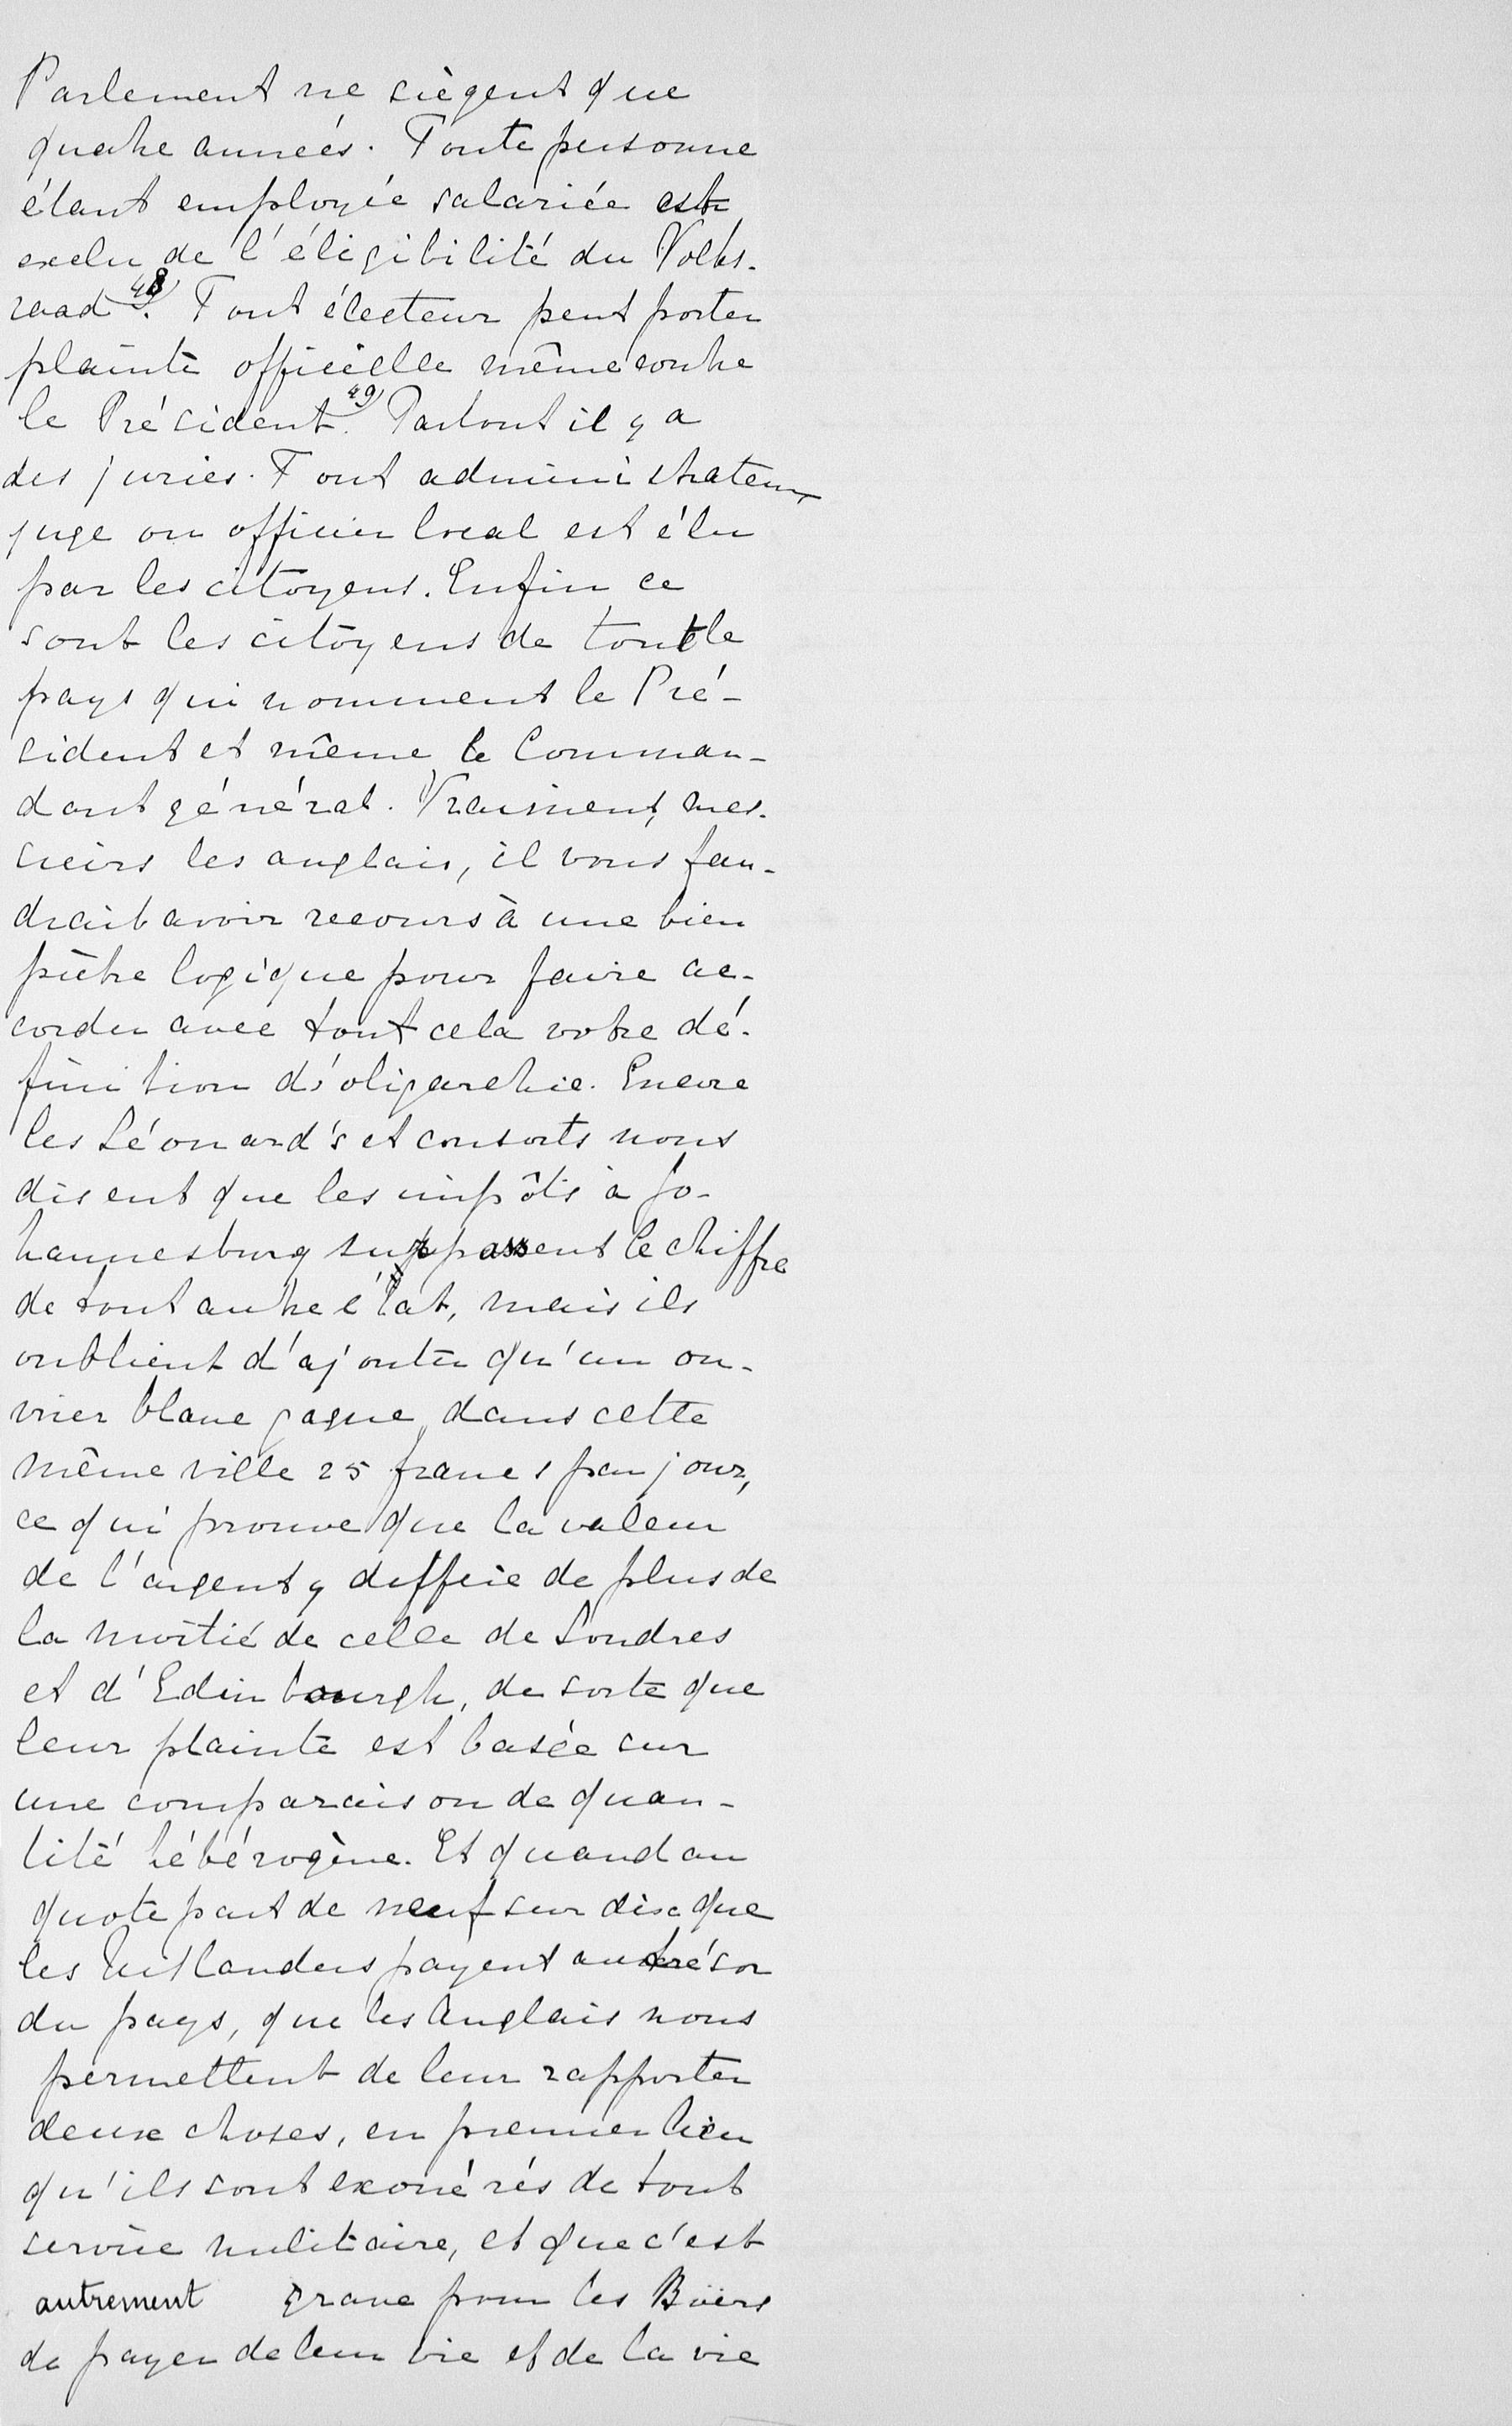 Parlement ne siègent que
quatre années. Toute personne
étant employée salariée est
exclu de l'éligibilité du Volks-
raad 48). Tout électeur peut porter
plainte officielle même contre
le Président 49). Partout il y a
des juries. Tout administrateur,
juge ou officier local est élu
par les citoyens. Enfin ce
sont les citoyens de tout le
pays qui nomment le Pré-
sident et même le Comman-
dant général. Vraiment, mes-
sieirs les anglais, il vous fau-
drait avoir recours à une bien
piètre logique pour faire ac-
corder avec tout cela votre dé-
finition d'oligarchie. Encore
les Léonard's et consorts nous
disent que les impôts à Jo-
hannesburg surpassent le chiffre
de tout autre état, mais ils
oublient d'ajouter qu'un ou-
vrier blanc gagne dans cette
même ville 25 francs par jour,
ce qui prouve que la valeur
de l'argent y diffère de plus de
la moitié de celle de Londres
et d'Edinbourgh, de sorte que
leur plainte est basée sur
une comparaison de quan-
tité hétérogène. Et quand au
quote part de neuf sur dix que
les Uitlanders payent au trésor
du pays, que les Anglais nous
permettent de leur rapporter
deux choses, en premier lieu
qu'ils sont exonérés de tout
service militaire, et que c'est
autrement grave pour les Boërs
de payer de leur vie et de la vie